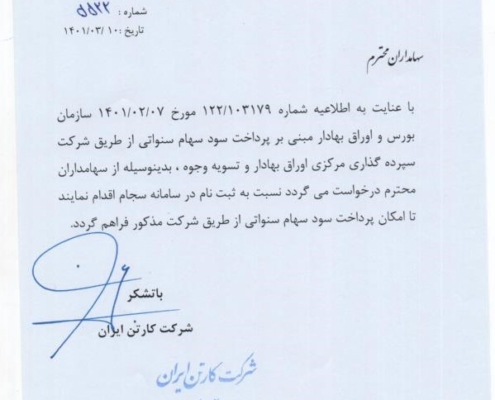 شماره : ۵۵۲۲
تاریخ : ۱۴۰۱/۰۳/۱۰
سهامداران محترم
با عنایت به اطلاعیه شماره ۱۲۲/۱۰۳۱۷۹ مورخ ۱۴۰۱/۰۲/۰۷ سازمان
بورس و اوراق بهادار مبنی بر پرداخت سود سهام سنواتی از طریق شرکت
سپرده گذاری مرکزی اوراق بهادار و تسویه وجوه ، بدینوسیله از سهامداران
محترم درخواست می گردد نسبت به ثبت نام در سامانه سجام اقدام نمایند
تا امکان پرداخت سود سهام سنواتی از طریق شرکت مذکور فراهم گردد.
باتشکر
شرکت کارتن ایران
شرکت کارتن ایران